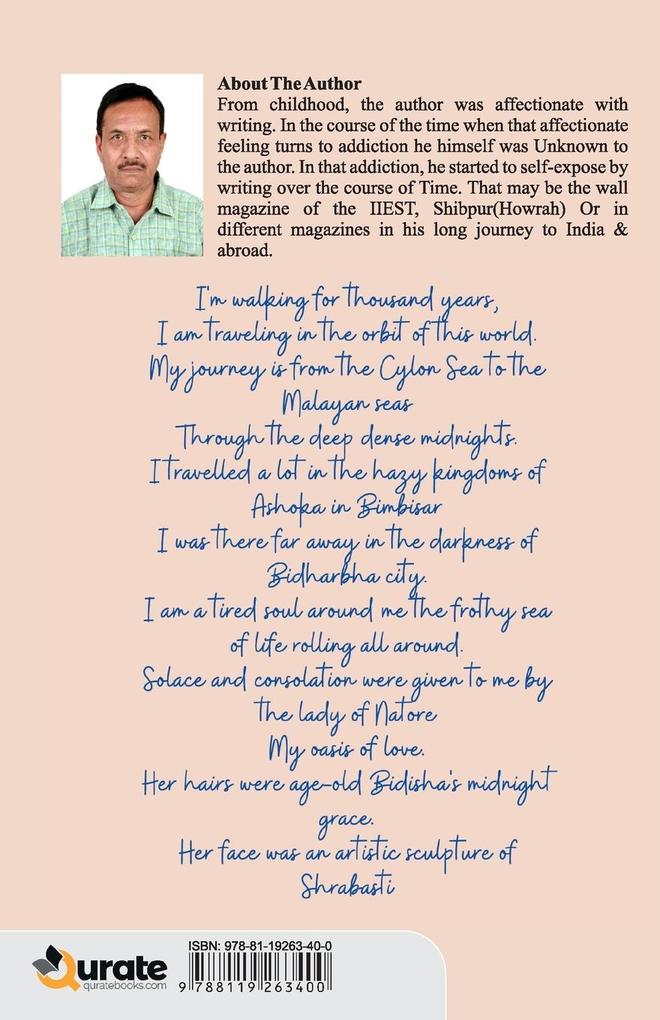 About The Author
From childhood, the author was affectionate with
writing. In the course of the time when that affectionate
feeling turns to addiction he himself was Unknown to
the author. In that addiction, he started to self-expose by
writing over the course of Time. That may be the wall
magazine of the IIEST, Shibpur(Howrah) Or in
different magazines in his long journey to India &
abroad.
I'm walking for thousand years,
I am traveling in the orbit of this world.
My journey is from the Cylon Sea to the
Malayan seas
Through the deep dense midnights.
I travelled a lot in the hazy kingdoms of
Ashoka in Bimbisar
I was there far away in the darkness of
Bidharbha city.
I am a tired soul around me the frothy sea
of life rolling all around.
Solace and consolation were given to me by
the lady of Natore
My oasis of love.
Her hairs were age-old Bidisha's midnight
grace.
Her face was an artistic sculpture of
Shrabasti
ISBN: 978-81-19263-40-0
Qurate
quratebooks.com
9 788119 263400